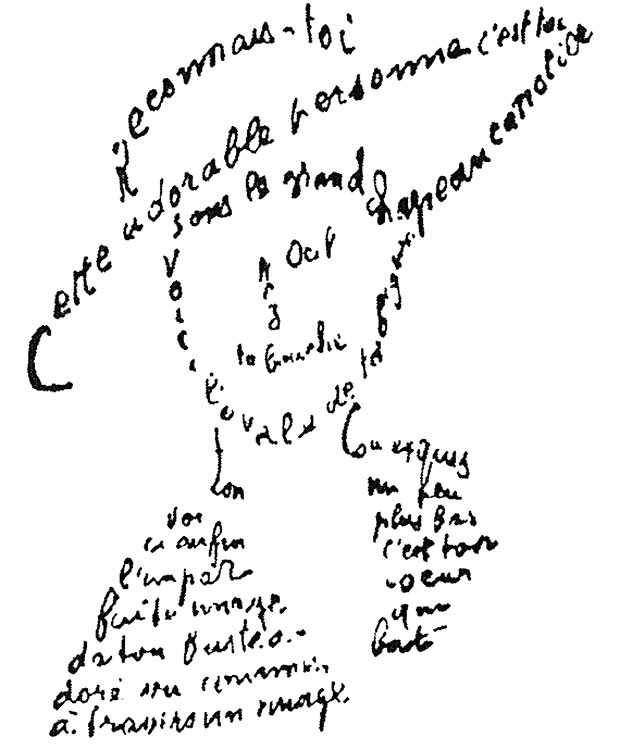 Reconnais-toi
Cette adorable personne c'est toi
sous le grand chapeau canotier
Oeil
Nez
ta bouche
Voici l'ovale de ta figure
Ton
Cou exquis
Voi
ci enfin
l'impar
faite image
de ton buste a
doré vu comme
à travers un nuage
un peu
plus bas
c'est ton
coeur
qui
bat